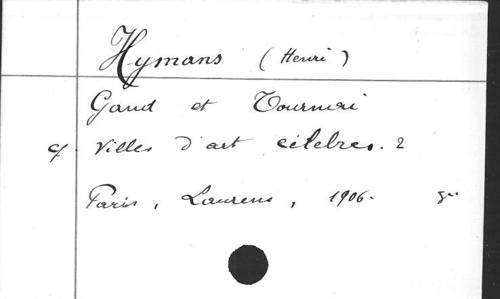 Hymans (Henri)
Gand et Tournai
cf. Villes d'art célèbres. 2
Paris, Laurens, 1906.